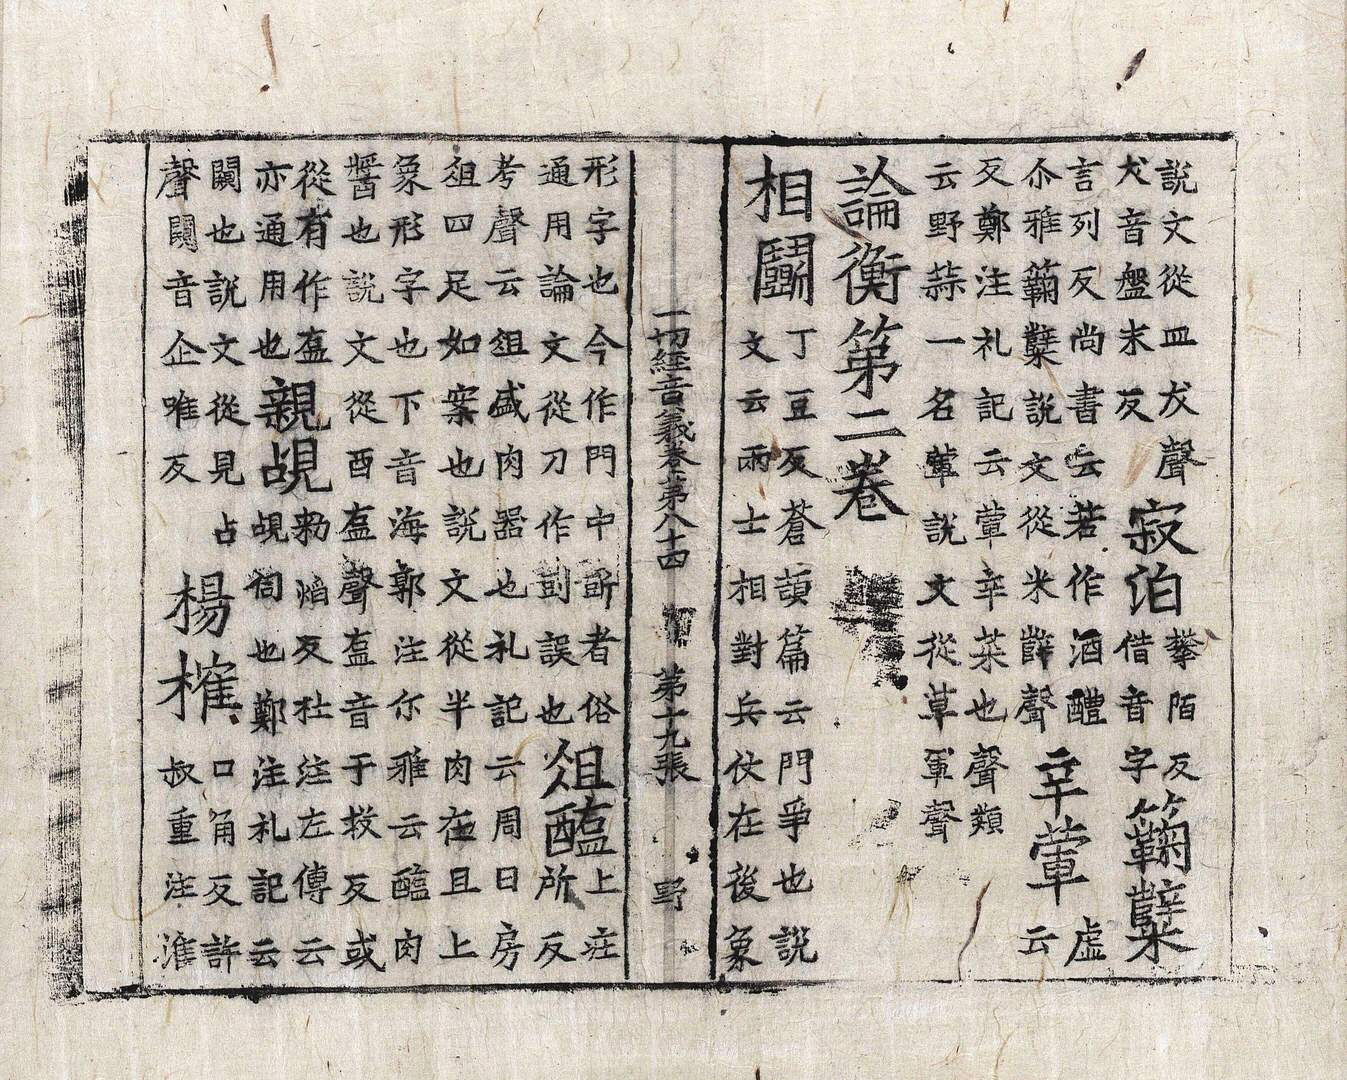 說文從皿犮聲
犬音盤末反
寂泊
攀陌反
借音字
䉤糵
言列反尚書云若作酒醴
尒雅䉤糵說文從米辥聲
辛葷
虛
云
反鄭注礼記云葷辛菜也聲類
云野蒜一名葷說文從草軍聲
論衡第二卷
相鬭
丁豆反蒼頡篇云門爭也說
文云兩士相對兵仗在後象
一切經音義卷第八十四 第十九張 野
形字也今作門中斲者俗
通用論文從刀作剅誤也
俎醢
上莊
所反
考聲云俎盛肉器也礼記云周曰房
俎四足如案也說文從半肉在且上
象形字也下音海郭注尒雅云醢肉
醬也說文從酉䀁聲䀁音于救反或
從有作䀁
亦通用也
親覘
勑焰反杜注左傳云
覘伺也鄭注礼記云
闚也說文從見占
聲闚音企唯反
楊榷
口角反許
叔重注淮